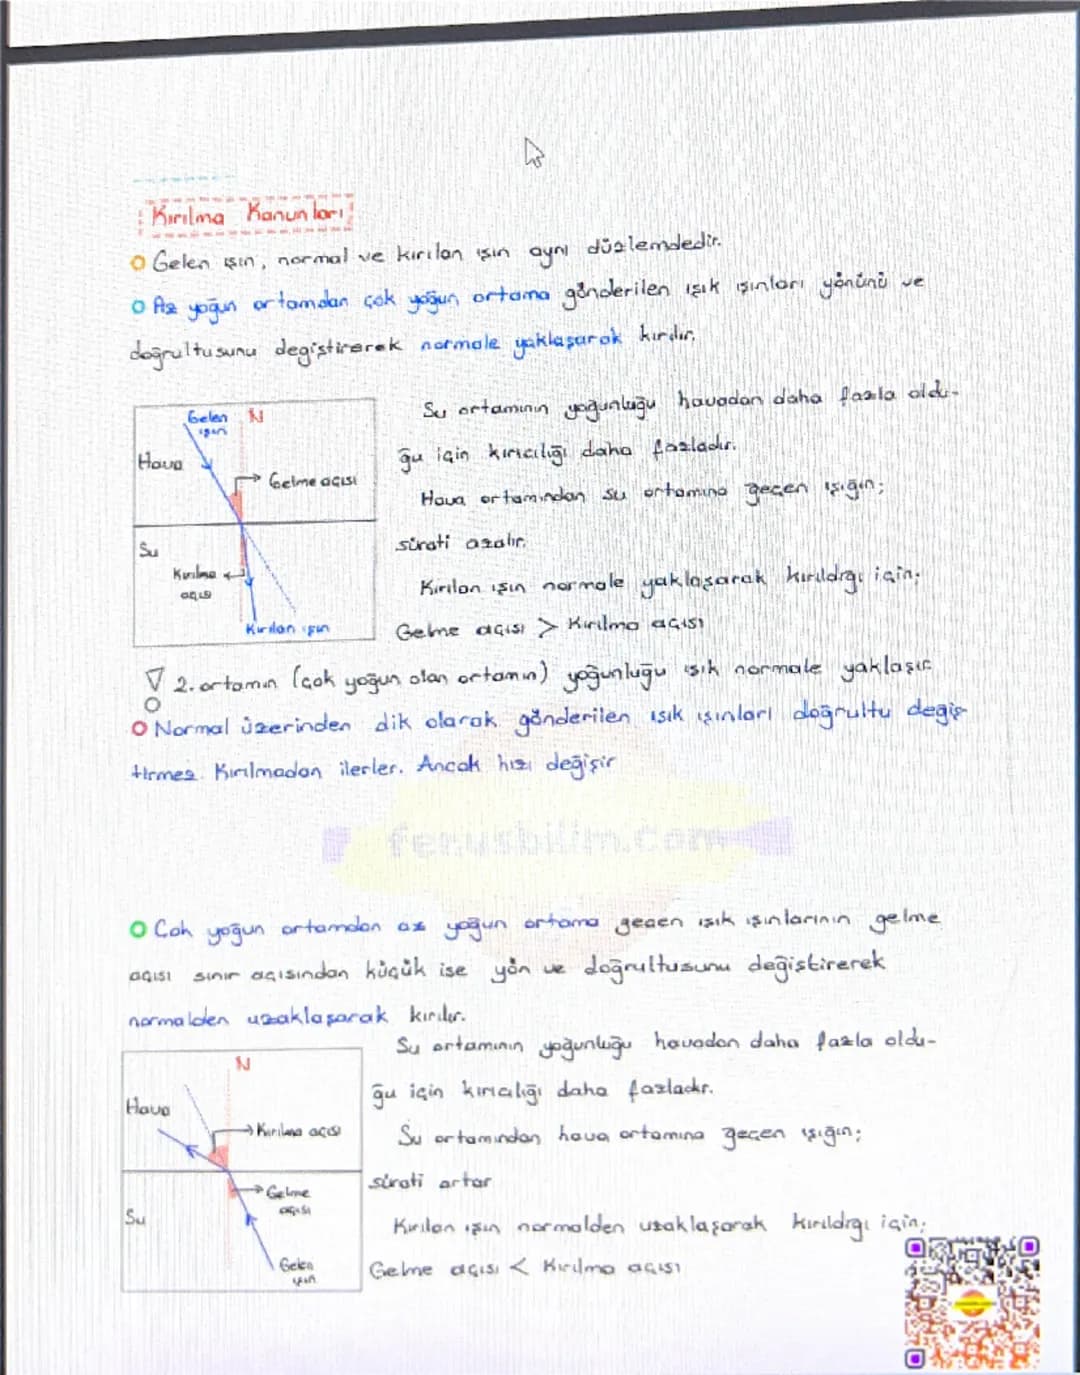 Kırılma Kanunları
Gelen ışın, normal ve kırılan ışın aynı düzlemdedir.
Az yoğun ortamdan çok yoğun ortama gönderilen ışık ışınları yönünü ve
doğrultusunu degiştirerek normale yaklaşarak kırılır.
Gelen ışın
N
Hava
Gelme açısı
Su
Kırılma açısı
Kırılan ışın
Su ortamının yoğunluğu havadan daha fazla oldu-
ğu için kırıcılığı daha fazladır.
Hava ortamından su ortamına geçen ışığın;
sürati azalır.
Kırılan ışın normale yaklaşarak kırıldığı için;
Gelme açısı > Kırılma açısı
2. ortamın (çok yoğun olan ortamın) yoğunluğu ışık normale yaklaşır.
Normal üzerinden dik olarak gönderilen ışık ışınları doğrultu değiş-
tirmez. Kırılmadan ilerler. Ancak hızı değişir
fenusbilim.com
Çok yoğun ortamdan az yoğun ortama geçen ışık ışınlarının gelme
açısı sınır açısından küçük ise yön ve doğrultusunu değiştirerek
normalden uzaklaşarak kırılır.
N
Hava
Kırılma açısı
Gelme açısı
Su
Gelen ışın
Su ortamının yoğunluğu havadan daha fazla oldu-
ğu için kırıcılığı daha fazladır.
Su ortamından hava ortamına geçen ışığın;
sürati artar
Kırılan ışın normalden uzaklaşarak kırıldığı için;
Gelme açısı < Kırılma açısı